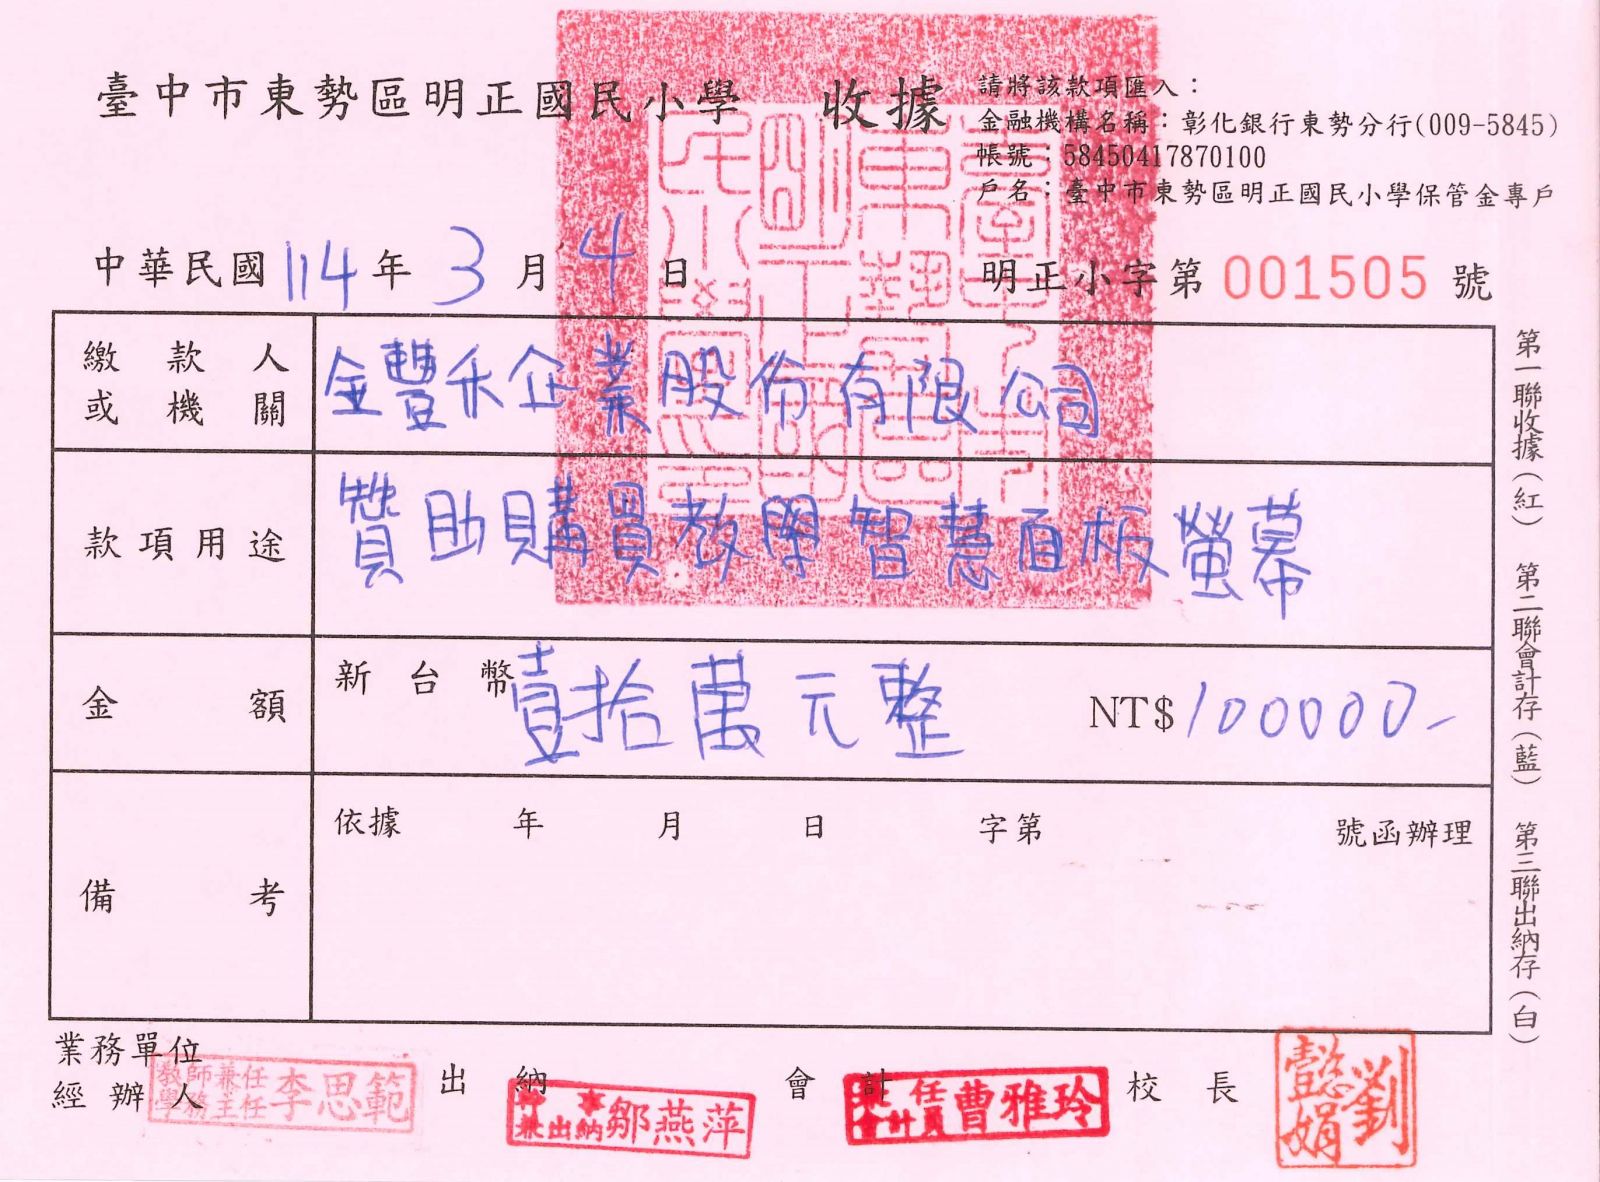 臺中市東勢區明正國民小學 收據
請將該款項匯入：
金融機構名稱：彰化銀行東勢分行(009-5845)
帳號：58450417870100
戶名：臺中市東勢區明正國民小學保管金專戶
中華民國114年3月4日
明正小字第 001505 號
繳款人或機關 金豐禾企業股份有限公司
款項用途 贊助購買教學智慧面板螢幕
金額 新台幣壹拾萬元整 NT$100000-
備考 依據 年 月 日 字第 號函辦理
第一聯收據(紅) 第二聯會計存(藍) 第三聯出納存(白)
業務單位
經辦人
教師兼任
學務主任 李思範
出納
兼出納 鄒燕萍
會計
兼任
會計員 曹雅玲
校長
劉懿娟
臺中市東勢區明正國民小學